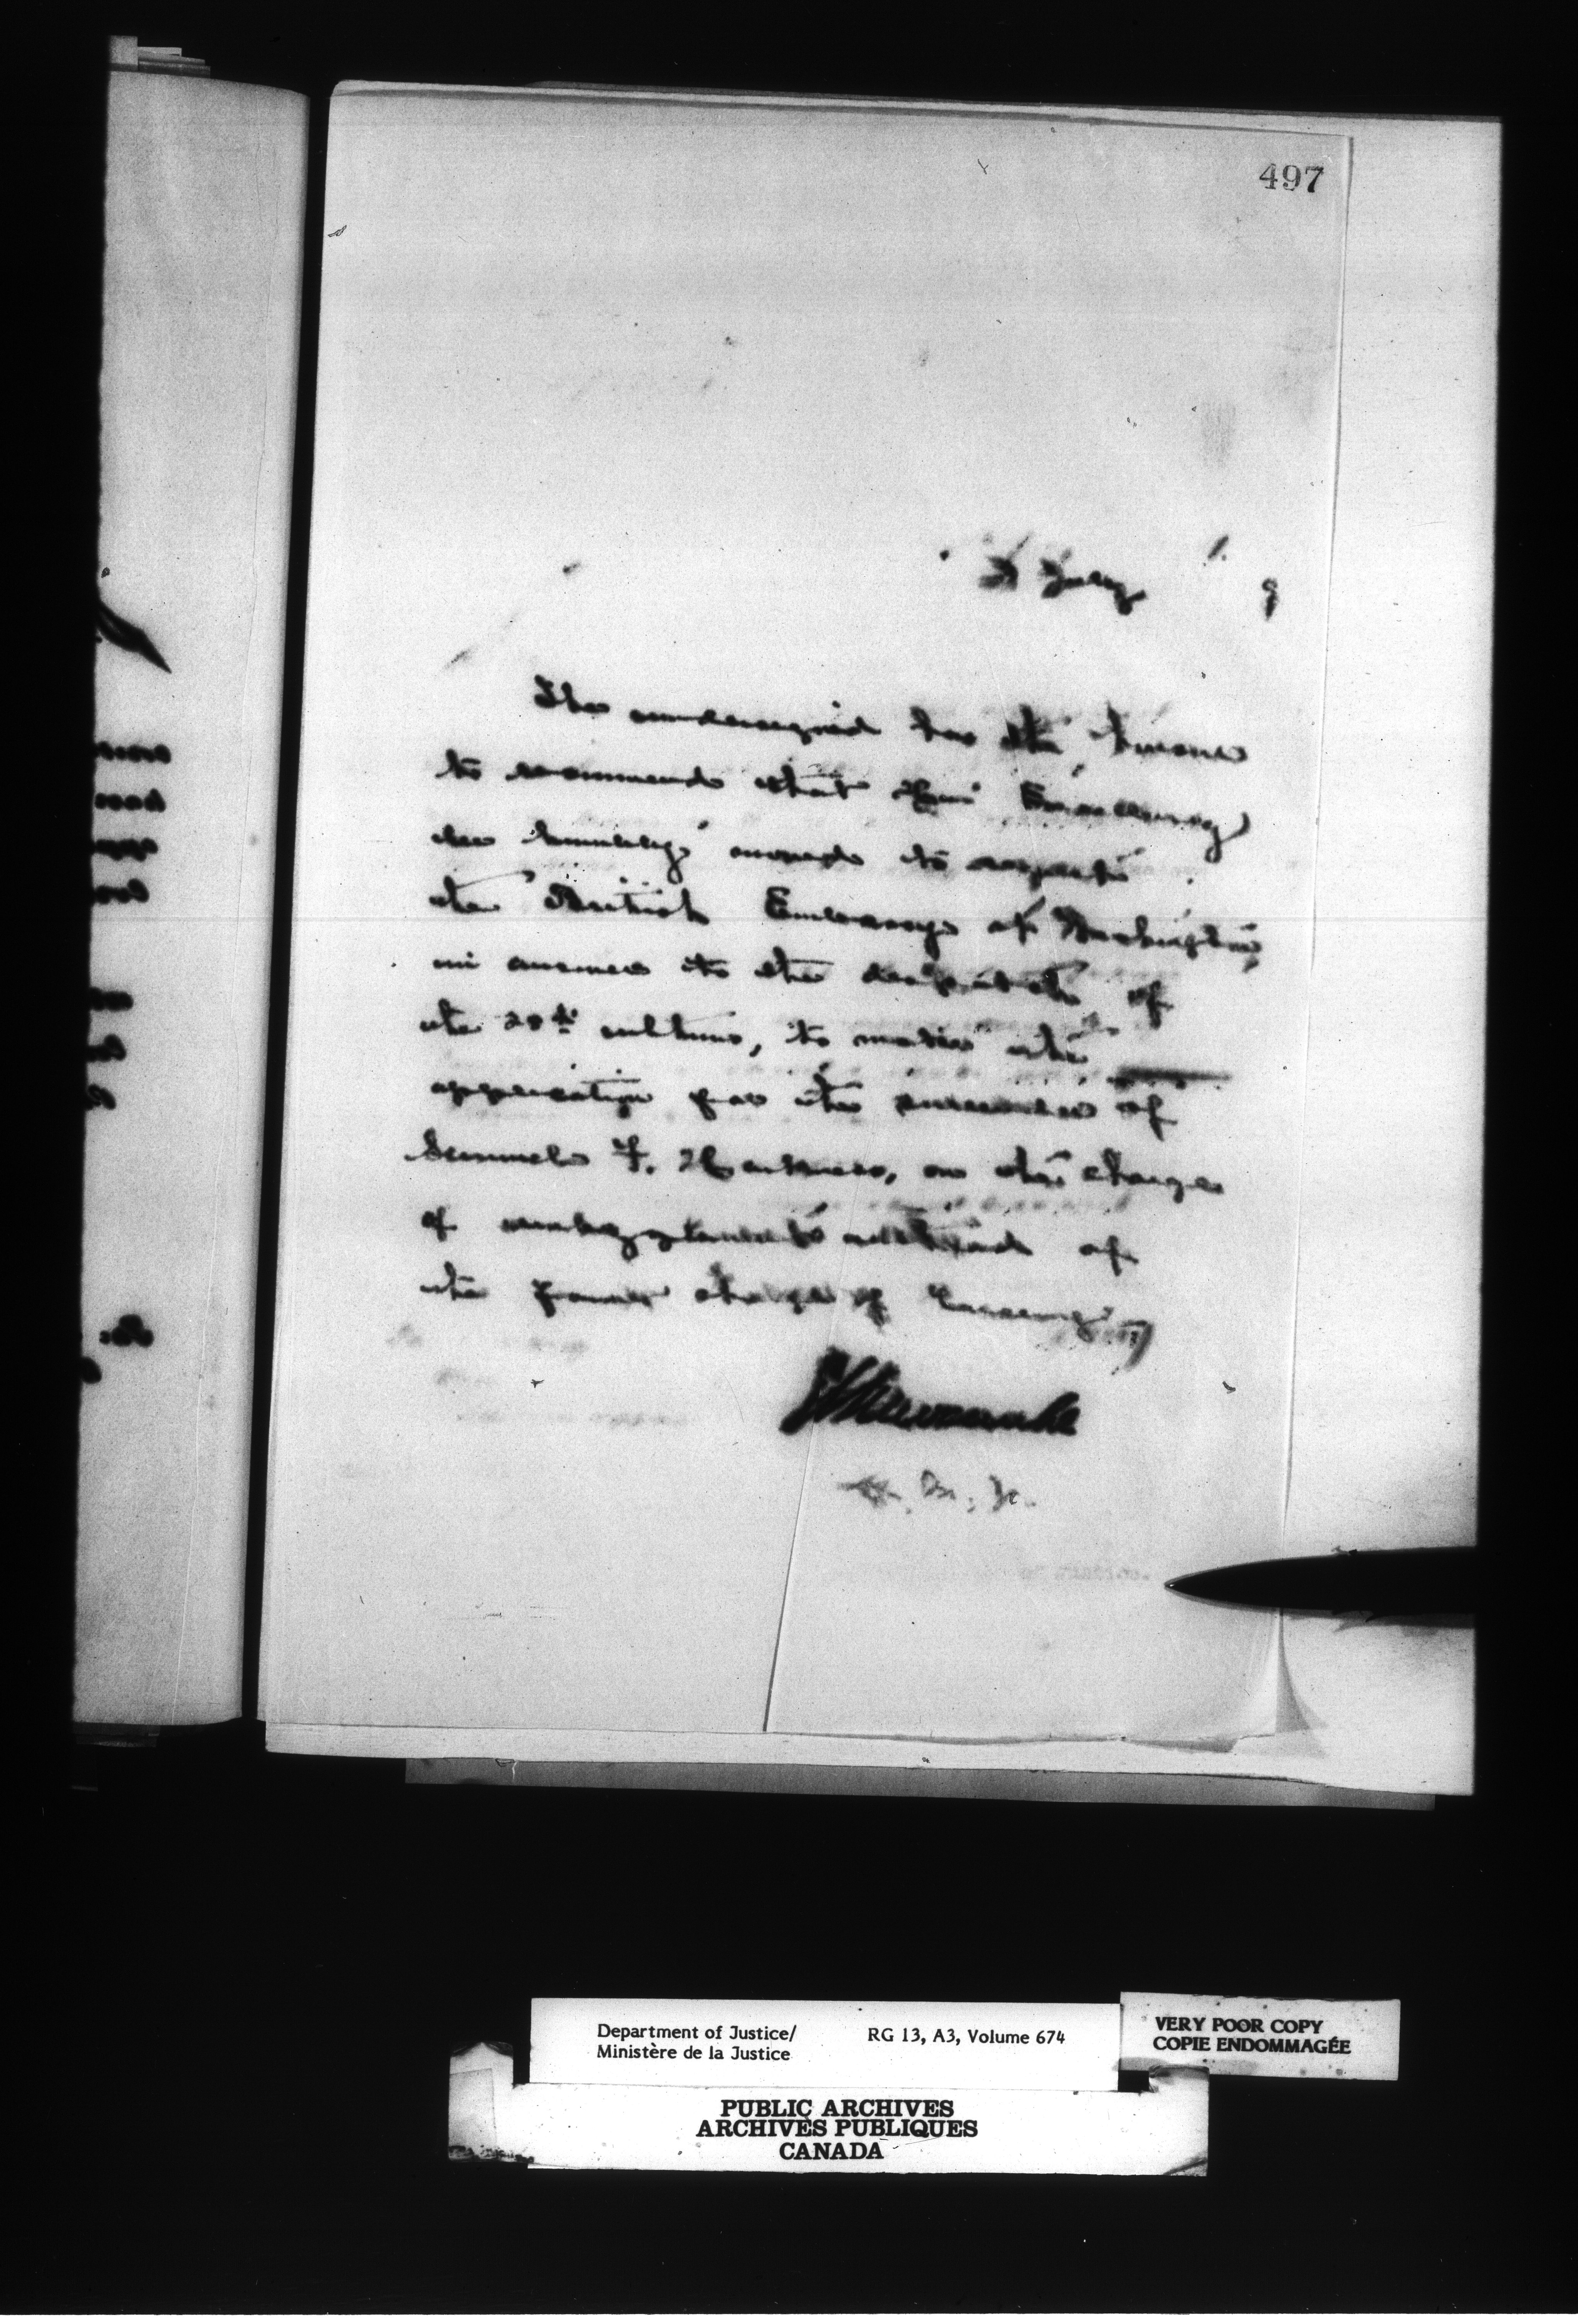 497
July
9
The undersigned has the honour
to recommend that His Excellency
be humbly moved to
the British Embassy at Washington,
in answer to the despatch of
the 28th ultimo, to
application for the surrender of
Samuel F. on the charge
of embezzlement instead of
the former charge of Larceny
A. M. J.
of Justice.
Department of Justice/ RG 13, A3, Volume 674
Ministère de la Justice
VERY POOR COPY
COPIE ENDOMMAGÉE
PUBLIC ARCHIVES
ARCHIVES PUBLIQUES
CANADA